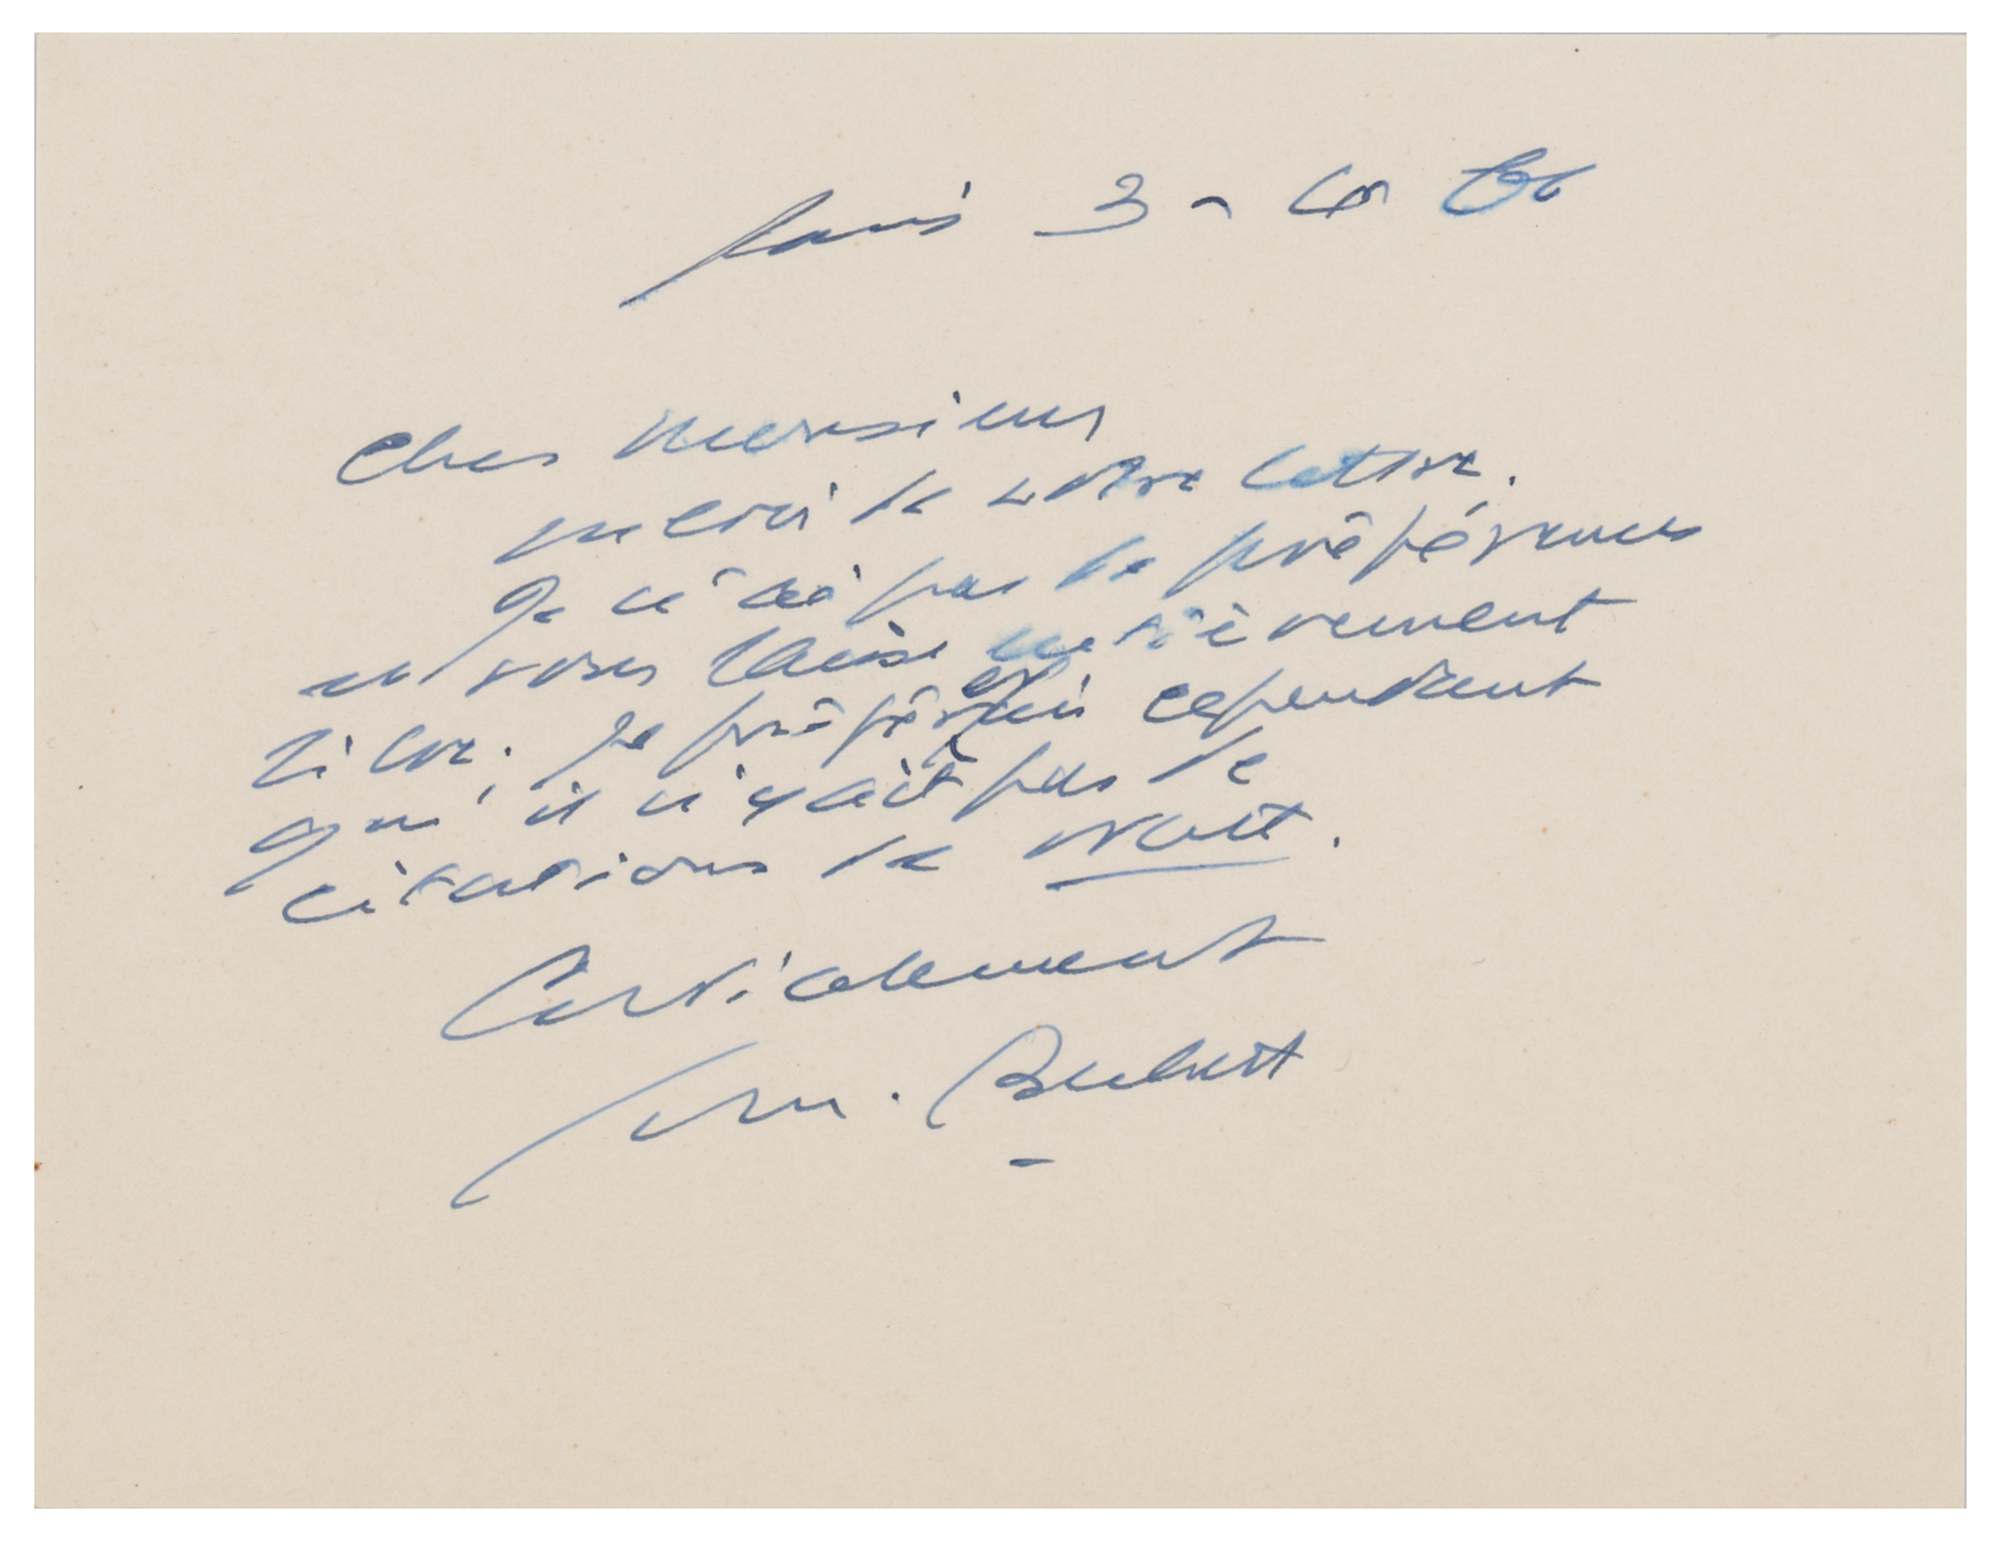 Paris 3 -
Cher Monsieur
merci de votre lettre.
Je n'ai pas de préférences
et vous laisse entièrement
libre. Je préférerais cependant
qu'il n'y ait pas de
citations de Watt.
Cordialement
Sam. Beckett